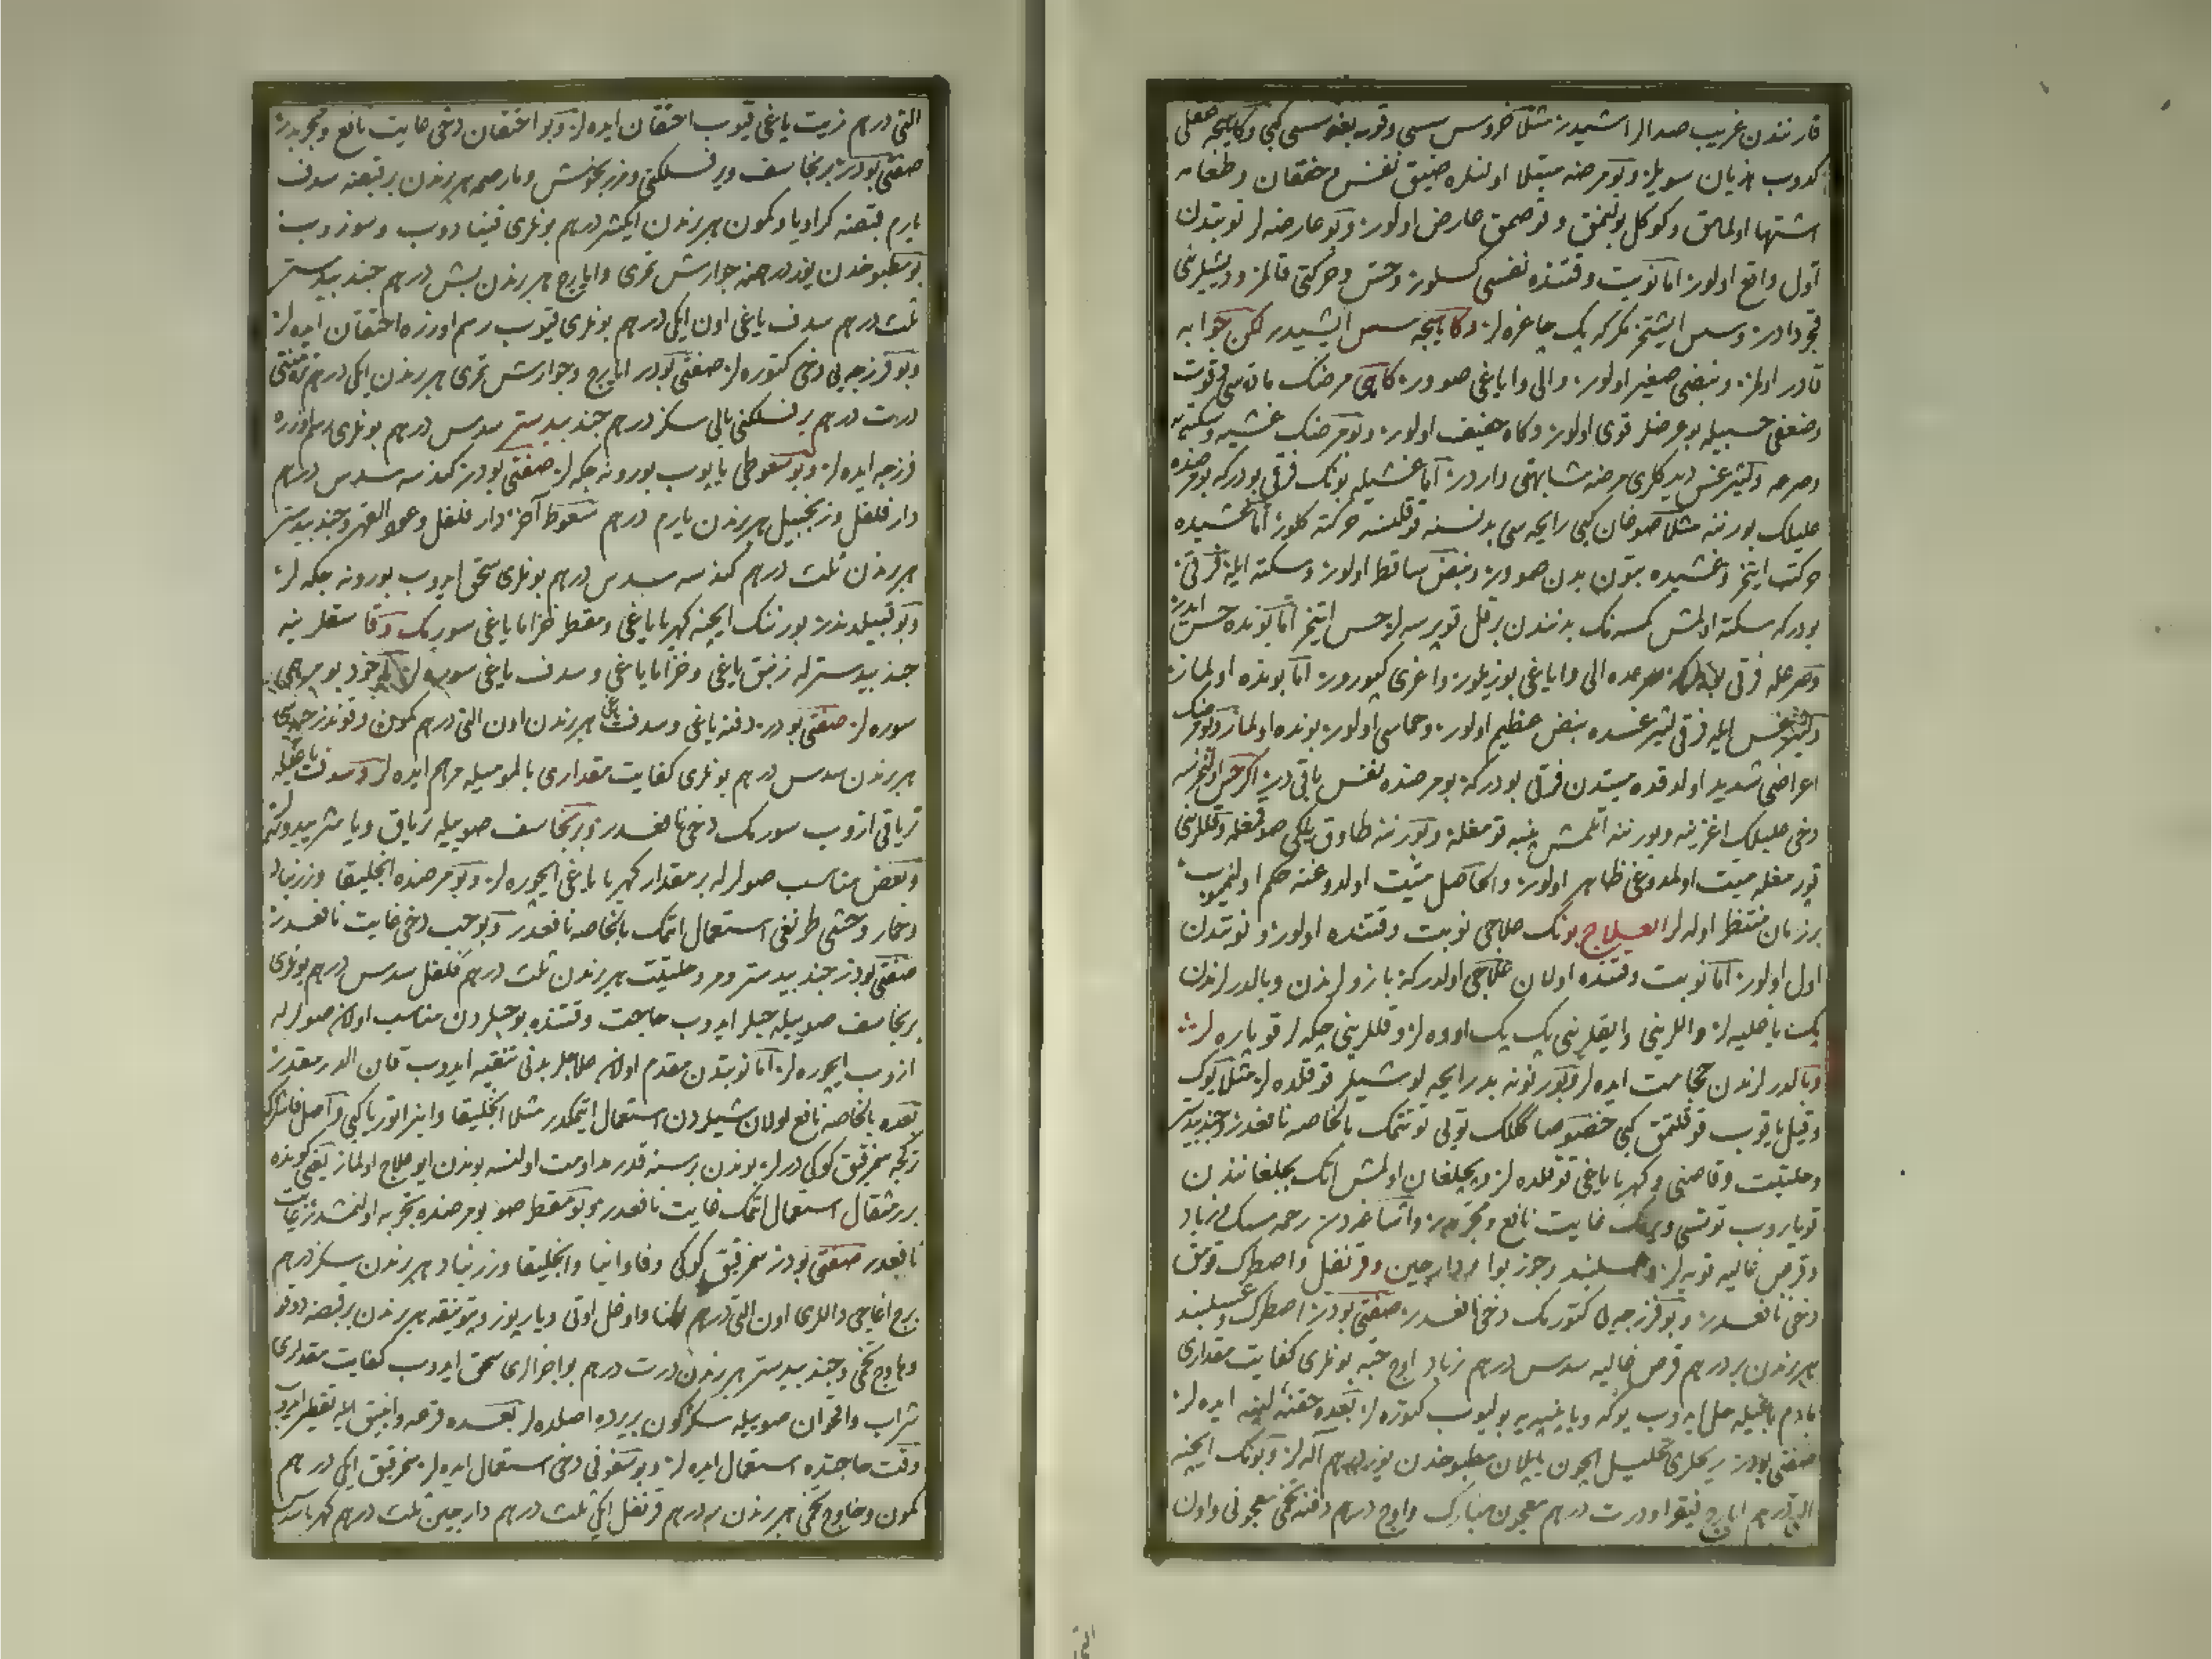 قارنندن غريب صدالر اشيدر مثلا خروس سسى وقوربغه سسى كبى وكاهيجه عقلى
كدوب هذيان سويلر وبو مرضه مبتلا اولنلره ضيق نفس وخفقان وطعامه
اشتها اولمامق وكوكل بولنمق وقوصمق عارض اولور وبو عارضه لر نوبتدن
اول واقع اولور اما نوبت وقتنده نفسى كسلور وحس وحركتى قالمز وديشلرينى
وسس ايشتمز مكركه پك چاغره لر وكاهيجه سس ايشيدر لكن جوابه
قادر اولمز ونبضى صغير اولور والى واياغى صوور كاهى مرضك ماده سى وقوت
وضعفى حسبيله بو عرضلر قوى اولور وكاه خفيف اولور وبو مرضك غشيه وسكته يه
وصرعه وليثرغس ديدكلرى مرضه مشابهتى واردر اما غشيله بونك فرقى بودركه بو مرضده
عليلك بورننه مثلا صوغان كبى رايحه سى بد نسنه قوقلنسه حركته كلور اما غشيده
حركت ايتمز وغشيده بتون بدن صوور ونبض ساقط اولور وسكته ايله فرقى
بودركه سكته اولمش كسه نك بدنندن بر قل قوپرسه لر حس ايتمز اما بونده حس ايدر
وصرعله فرقى صرعده الى واياغى بوزيلور واغزى كپورور اما بونده اولماز
وليثرغس ايله فرقى ليثرغسده نبض عظيم اولور وحماسى اولور بونده اولماز وبو مرضك
اعراضى شديد اولدقده ميتدن فرقى بودركه بو مرضده نفس باقى در اكر حس اولنمزسه
دخى عليلك اغزينه وبورننه اتلمش پنبه قومغله وبورننه طاوق يلكى صوقمغله وقللرينى
قوپرمغله ميت اولمدوغى ظاهر اولور والحاصل ميت اولدوغنه حكم اولنميوب
بر زمان منتظر اوله لر العلاج بونك علاجى نوبت وقتنده اولور ونوبتدن
اول اولور اما نوبت وقتنده اولان علاجى اولدركه بازولرندن وبالدرلرندن
پك باغليه لر واللرينى واياقلرينى پك پك اووه لر وقللرينى چكه لر قوپاره لر
وبالدرلرندن حجامت ايده لر وبورنونه بد رايحه لو شيلر قوقلده لر مثلا يوك
وقيل ياقوب قوقلتمق كبى خصوصا ككلك تويى توتتمك بالخاصه نافعدر وجند بيدستر
وحلتيت وقاصنى وكهربا ياغى قوقلده لر وييجلغان اولمش انك يجلغانندن
قوپاروب توتسى ويرمك غايت نافع ومجربدر واشاغردن رحمه مسك زباد
وقرص غاليه قويه لر وعسلبند وجوز بوا ودارچين وقرنفل واصطرك قومق
دخى نافعدر وبو فرزجه يى كتورمك دخى نافعدر صفتى بودر اصطرك وعسلبند
هر بريندن بر درهم قرص غاليه سدس درهم زباد اوچ حبه بونلرى كفايت مقدارى
بادم ياغيله حل ايدوب يوكه وياپنبه يه بوليوب كتوره لر بعده حقنه لينه ايده لر
صفتى بودر ريحلرى تحليل ايچون ياپيلان مطبوخدن يوز درهم آله لر وبونك ايچنه
التى درهم ايارج فيقرا ودرت درهم معجون مبارك واوچ درهم دفنه تخمى معجونى واون
التى
التى درهم زيت ياغى قيوب احتقان ايده لر وبو احتقان دخى غايت نافع ومجربدر
صفتى بودر برنجاسف ويرفسلكنى ومرزنجوش ومارصمه هر برندن بر قبضه سدف
يارم قبضه كراويا وكمون هر برندن ايكيشر درهم بونلرى قينادوب وسوزوب
بو مطبوخدن يوز درهمه جوارش تمرى وايارج هر برندن بش درهم جند بيدستر
ثلث درهم سدف ياغى اون ايكى درهم بونلرى قيوب رسم اوزره احتقان ايده لر
وبو فرزجه يى دخى كتوره لر صفتى بودر ايارج وجوارش تمرى هر برندن ايكى درهم
درت درهم يرفسلكنى بالى سكز درهم جند بيدستر سدس درهم بونلرى رسم اوزره
فرزجه ايده لر وبو سعوطى ياپوب بورونه چكه لر صفتى بودر كندسه سدس درهم
دار فلفل وزنجبيل هر برندن يارم درهم سعوط آخر دار فلفل وعود القهر وجند بيدستر
هر برندن ثلث درهم كندسه سدس درهم بونلرى سحق ايدوب بورونه چكه لر
وبو قبيلدندر بورننك ايچنه كهربا ياغى ومقطر خزاما ياغى سورمك وقاسقلرينه
جند بيدسترله زنبق ياغى وخزاما ياغى وسدف ياغى سوره لر ياخود بو مرهمى
سوره لر صفتى بودر دفنه ياغى وسدف ياغى هر برندن اون التى درهم كمون وقوندز خايه سى
هر برندن سدس درهم بونلرى كفايت مقدارى بالموميله مرهم ايده لر وسدف ياغيله
ترياقى ازوب سورمك دخى نافعدر وبرنجاسف صوييله ترياق ويا مثرديدوس
وبعض مناسب صولرله بر مقدار كهربا ياغى ايچوره لر وبو مرضده انجليقا وزرنباد
وحمار وحشى طرنغى استعمال اتمك بالخاصه نافعدر وبو حب دخى غايت نافعدر
صفتى بودر جند بيدستر ومر وحلتيت هر برندن ثلث درهم فلفل سدس درهم بونلرى
برنجاسف صوييله حبلر ايدوب حاجت وقتنده بو حبلردن مناسب اولان صولرله
ازوب ايچوره لر اما نوبتدن مقدم اولان علاجلر بدنى تنقيه ايدوب قان الدرمقدر
بعده بالخاصه نافع اولان شيلردن استعمال ايتمكدر مثلا انجليقا وايپراتوريا كبى واصل فاشرا
بونلردن بر نسنه قدر مداومت اولنسه بوندن ايو علاج اولماز يعنى كونده
بر مثقال استعمال اتمك غايت نافعدر وبو مقطر صو بو مرضده تجربه اولنمشدر غايت
نافعدر صفتى بودر مخرقيق كوكى وفاوانيا وانجليقا وزرنباد هر برندن سكز درهم
برج اغاجى داللرى اون التى درهم واوغل اوتى وياربوز وتوتيقه هر برندن بر قبضه دوقو
وهاوج تخمى وجند بيدستر هر برندن درت درهم بو اجزالرى سحق ايدوب كفايت مقدارى
شراب واقحوان صوييله سكز كون بر يرده اصلده لر بعده قرعه وانبيق ايله تقطير ايدوب
وقت حاجتده استعمال ايده لر وبو سفوفى دخى استعمال ايده لر مخرقيق ايكى درهم
كمون وهاوج تخمى هر برندن بر درهم قرنفل ايكى ثلث درهم دارچين ثلث درهم كهربا سدس